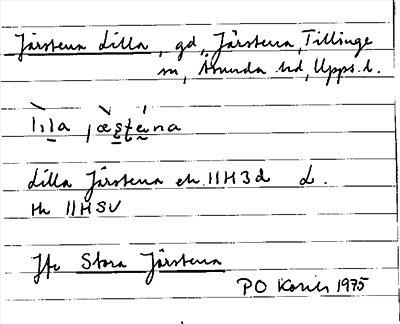 Järstena Lilla, gd, Järstena, Tillinge
sn, Åsunda hd, Upps. l.
lìla jæ̀sténa
Lilla Järstena ek. 11H3d L.
Hr 11HSV
Jfr Stora Järstena
PO 1975